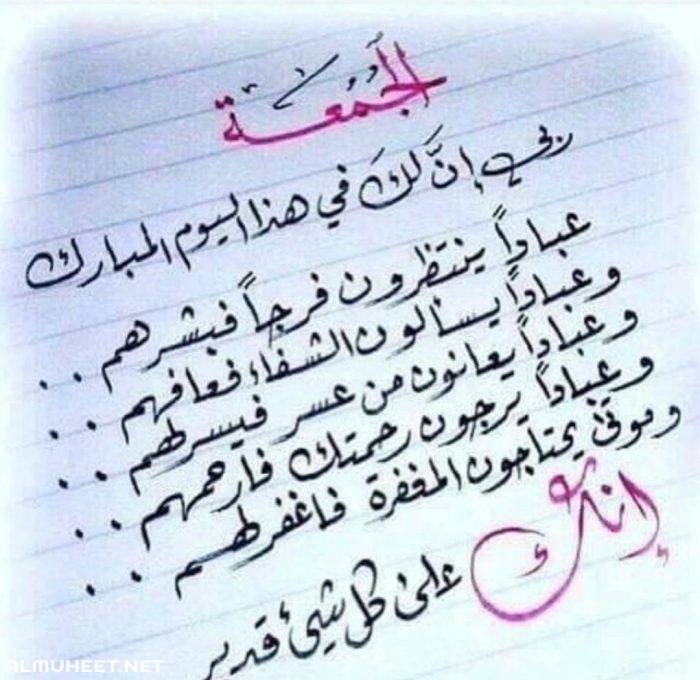 الجُمُعة
ربي إنَّ لكَ في هذا اليوم المبارك
عباداً ينتظرون فرجاً فبشرهم . .
وعباداً يسألون الشفاء فعافهم . .
وعباداً يعانون من عسر فيسر لهم . .
وعباداً يرجون رحمتك فارحمهم . .
وموتى يحتاجون المغفرة فاغفر لهم . .
إنك على كل شيئ قدير
ALMUHEET.NET